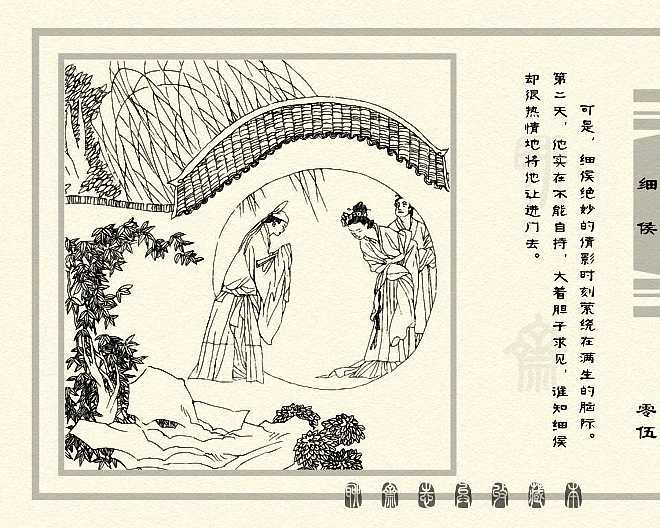 细侯
零伍
可是，细侯绝妙的倩影时刻萦绕在满生的脑际。
第二天，他实在不能自持，大着胆子求见，谁知细侯
却很热情地将他让进门去。
聊斋志异收藏本